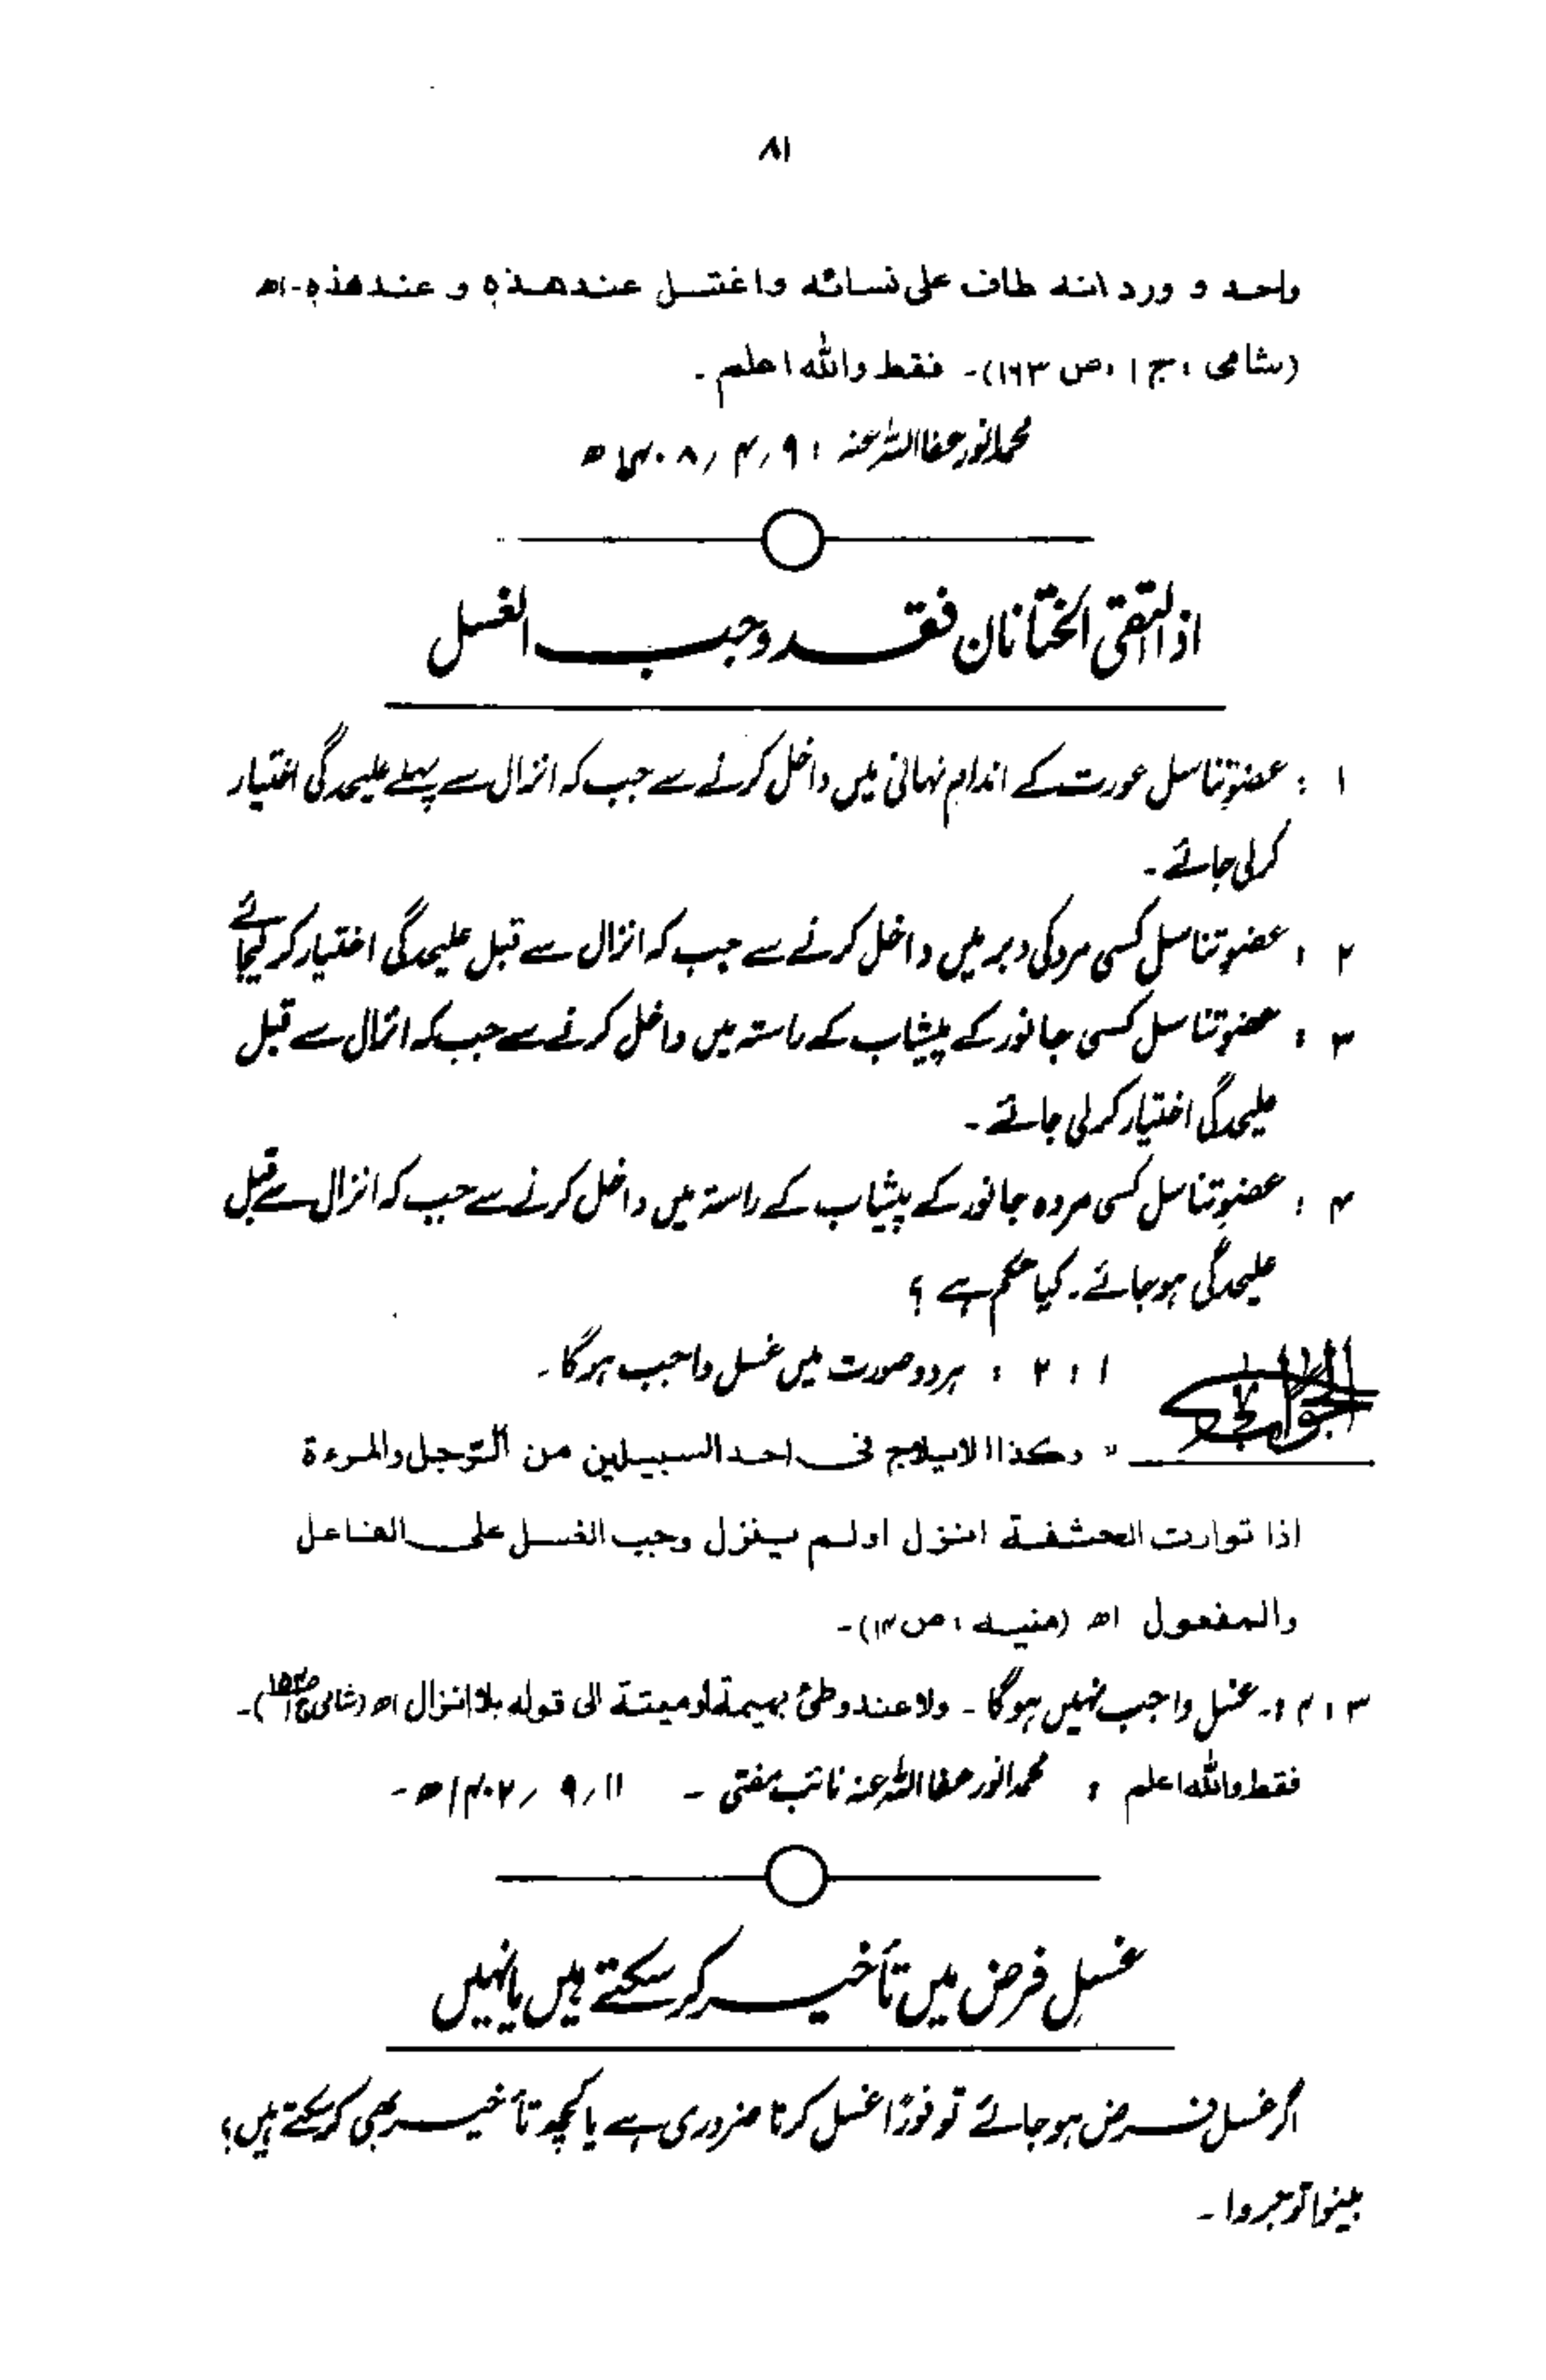 ۸۱
واحد و ورد انہ طاف علی نسائہ واغتسل عندھذہ و عندھذہ۔اھ
(شامی ، ج ۱ ، ص ۱۶۳)۔ فقط واللہ اعلم۔
محمد انور عفااللہ عنہ ، ۹؍۴؍۱۴۰۸ھ
اذا التقی الختانان فقد وجب الغسل
۱ : عضوِ تناسل عورت کے اندام نہانی میں داخل کرنے سے جب کہ انزال سے پہلے علیحدگی اختیار
کرلی جائے۔
۲ : عضوِ تناسل کسی مرد کی دبر میں داخل کرنے سے جب کہ انزال سے قبل علیحدگی اختیار کر لیجائے
۳ : عضوِ تناسل کسی جانور کے پیشاب کے راستہ میں داخل کرنے سے جب کہ انزال سے قبل
علیحدگی اختیار کرلی جائے۔
۴ : عضوِ تناسل کسی مردہ جانور کے پیشاب کے راستہ میں داخل کرنے سے جب کہ انزال سے قبل
علیحدگی ہوجائے۔ کیا حکم ہے ؟
الجواب ۱ ، ۲ : ہر دو صورت میں غسل واجب ہوگا۔
" وکذا الایلاج فی احد السبیلین من الرجل والمرءۃ
اذا توارت الحشفۃ انزل اولم ینزل وجب الغسل علی الفاعل
والمفعول اھ (منیہ ، ص۱۴)۔
۳ ، ۴ :۔ غسل واجب نہیں ہوگا۔ ولا عند وطئ بہیمۃ او میتۃ الی قولہ بلا انزال اھ (شامی ج۱ ص۱۵۴)۔
فقط واللہ اعلم ، محمد انور عفااللہ عنہ نائب مفتی ۔ ۱۱؍۹؍۱۴۰۲ھ۔
غسلِ فرض میں تأخیر کرسکتے ہیں یا نہیں
اگر غسل فرض ہوجائے تو فورًا غسل کرنا ضروری ہے یا کچھ تأخیر بھی کرسکتے ہیں؟
بینوا توجروا۔